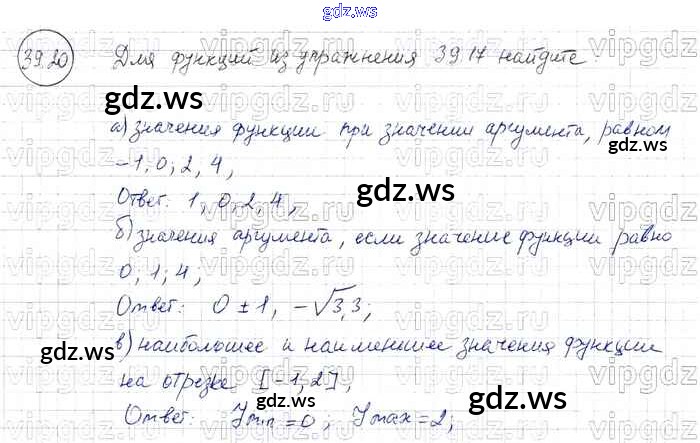 gdz.ws
39.20 Для функций из упражнения 39.17 найдите:
gdz.ws
gdz.ws
а) значения функции при значении аргумента, равном
-1, 0, 2, 4,
Ответ: 1, 0, 2, 4,
gdz.ws
б) значения аргумента, если значение функции равно
0; 1; 4;
gdz.ws
Ответ: 0 ± 1, -√3,3;
в) наибольшее и наименьшее значения функции
gdz.ws
на отрезке [-1,2],
gdz.ws
Ответ: Ymin = 0; Ymax = 2;